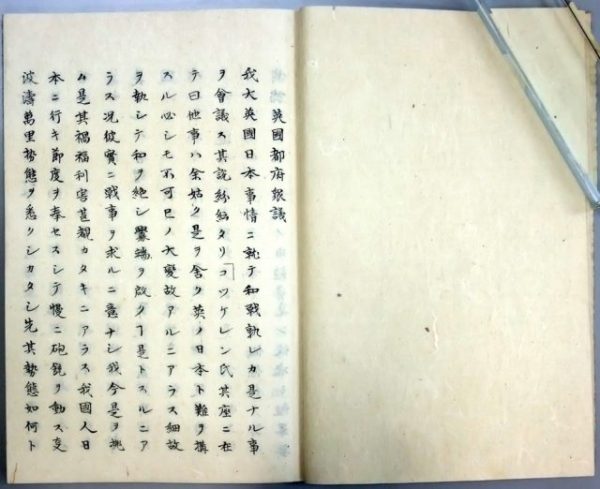 英國都府眾議
我大英國日本事情ニ就テ和戰孰レカ是ナル事
ヲ會議ス其說紛紜タリコツケレン氏其座ニ在
テ曰他事ハ余姑ク是ヲ舍ク英ノ日本ト難ヲ搆
スル必シモ不可已ノ大變故アルニアラス細故
ヲ執シテ和ヲ絕シ釁端ヲ啟クヿ是トスルニア
ラス况彼實ニ戰事ヲ求ルニ意ナシ我今是ヲ挑
ム是其禍福利害甚覩カタキニアラス我國人日
本ニ行キ節度ヲ奉セスシテ慢ニ砲銃ヲ動ス支
波濤萬里勢態ヲ悉クシカタシ先其勢態如何ト